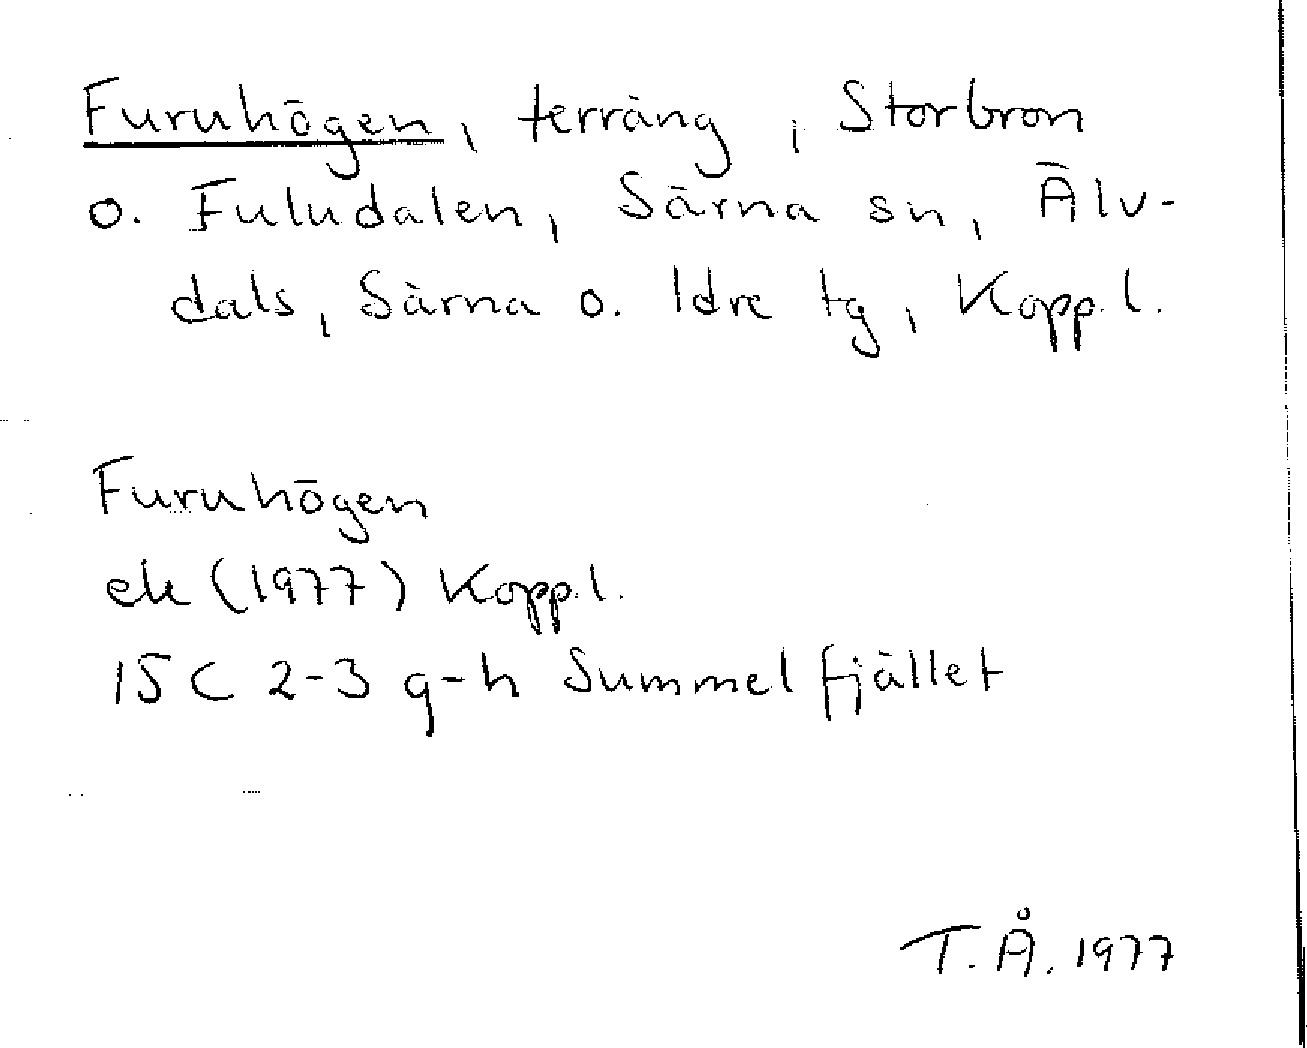 Furuhögen, terräng, Storbron
o. Fuludalen, Särna sn, Älv-
dals, Särna o. Idre tg, Kopp.l.
Furuhögen
ek (1977) Kopp.l.
15 C 2-3 g-h Summelfjället
T.Å. 1977